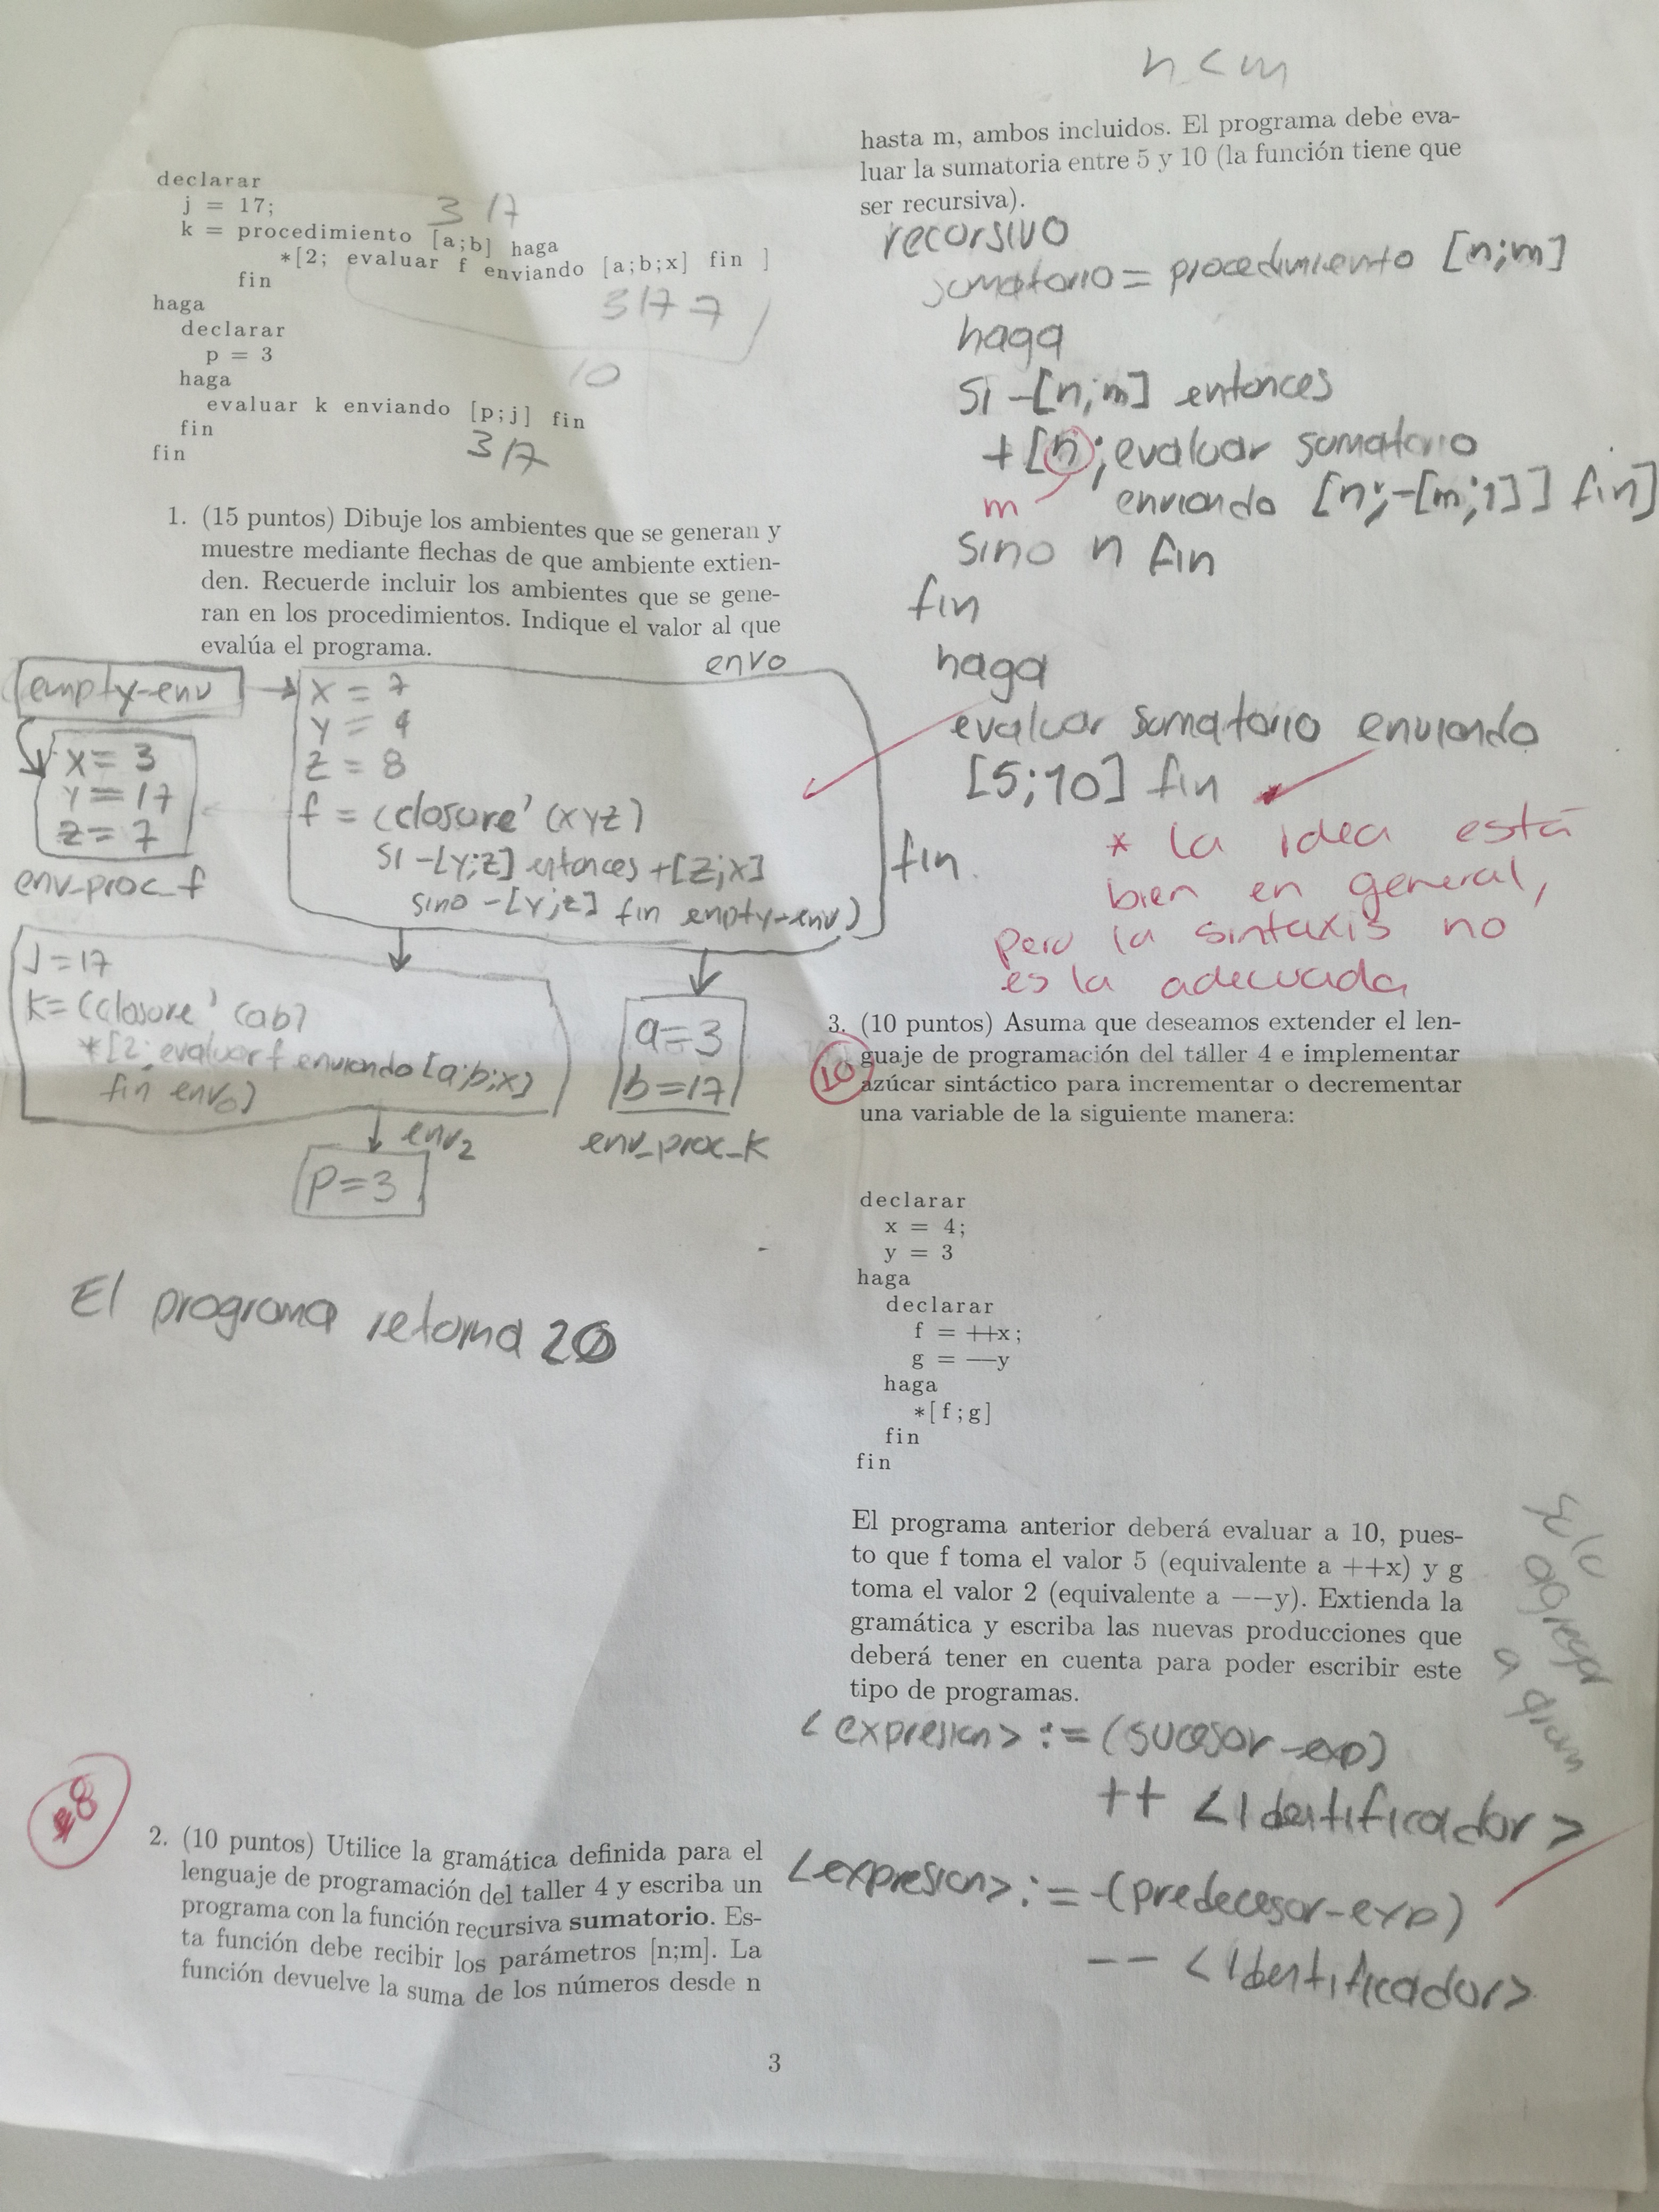 declarar
j = 17;
3 17
k = procedimiento [a;b] haga
*[2; evaluar f enviando [a;b;x] fin ]
fin
3 17 7
haga
declarar
p = 3
10
haga
evaluar k enviando [p;j] fin
fin
3 17
fin
1. (15 puntos) Dibuje los ambientes que se generan y
muestre mediante flechas de que ambiente extien-
den. Recuerde incluir los ambientes que se gene-
ran en los procedimientos. Indique el valor al que
evalúa el programa.
env0
empty-env
x = 7
y = 4
z = 8
f = (closure' (xyz)
si -[y;z] entonces +[z;x]
sino -[y;z] fin empty-env)
x = 3
y = 17
z = 7
env_proc_f
J = 17
k = (closure' (ab)
*[2; evaluar f enviando [a;b;x]
fin env0)
a = 3
b = 17
env_proc_k
env2
P = 3
El programa retorna 20
8
2. (10 puntos) Utilice la gramática definida para el
lenguaje de programación del taller 4 y escriba un
programa con la función recursiva sumatorio. Es-
ta función debe recibir los parámetros [n;m]. La
función devuelve la suma de los números desde n
n < m
hasta m, ambos incluidos. El programa debe eva-
luar la sumatoria entre 5 y 10 (la función tiene que
ser recursiva).
recorsivo
sumatorio = procedimiento [n;m]
haga
si -[n;m] entonces
+[n; evaluar sumatorio
m
enviando [n;-[m;1]] fin]
sino n fin
fin
haga
evaluar sumatorio enviando
[5;10] fin
fin
* la idea está
bien en general,
pero la sintaxis no
es la adecuada
3. (10 puntos) Asuma que deseamos extender el len-
guaje de programación del taller 4 e implementar
10
azúcar sintáctico para incrementar o decrementar
una variable de la siguiente manera:
declarar
x = 4;
y = 3
haga
declarar
f = ++x;
g = --y
haga
*[f;g]
fin
fin
El programa anterior deberá evaluar a 10, pues-
to que f toma el valor 5 (equivalente a ++x) y g
toma el valor 2 (equivalente a −−y). Extienda la
gramática y escriba las nuevas producciones que
deberá tener en cuenta para poder escribir este
tipo de programas.
solo
a gram
<expresion> := (sucesor-exp)
++ <Identificador>
<expresion> := (predecesor-exp)
-- <Identificador>
3